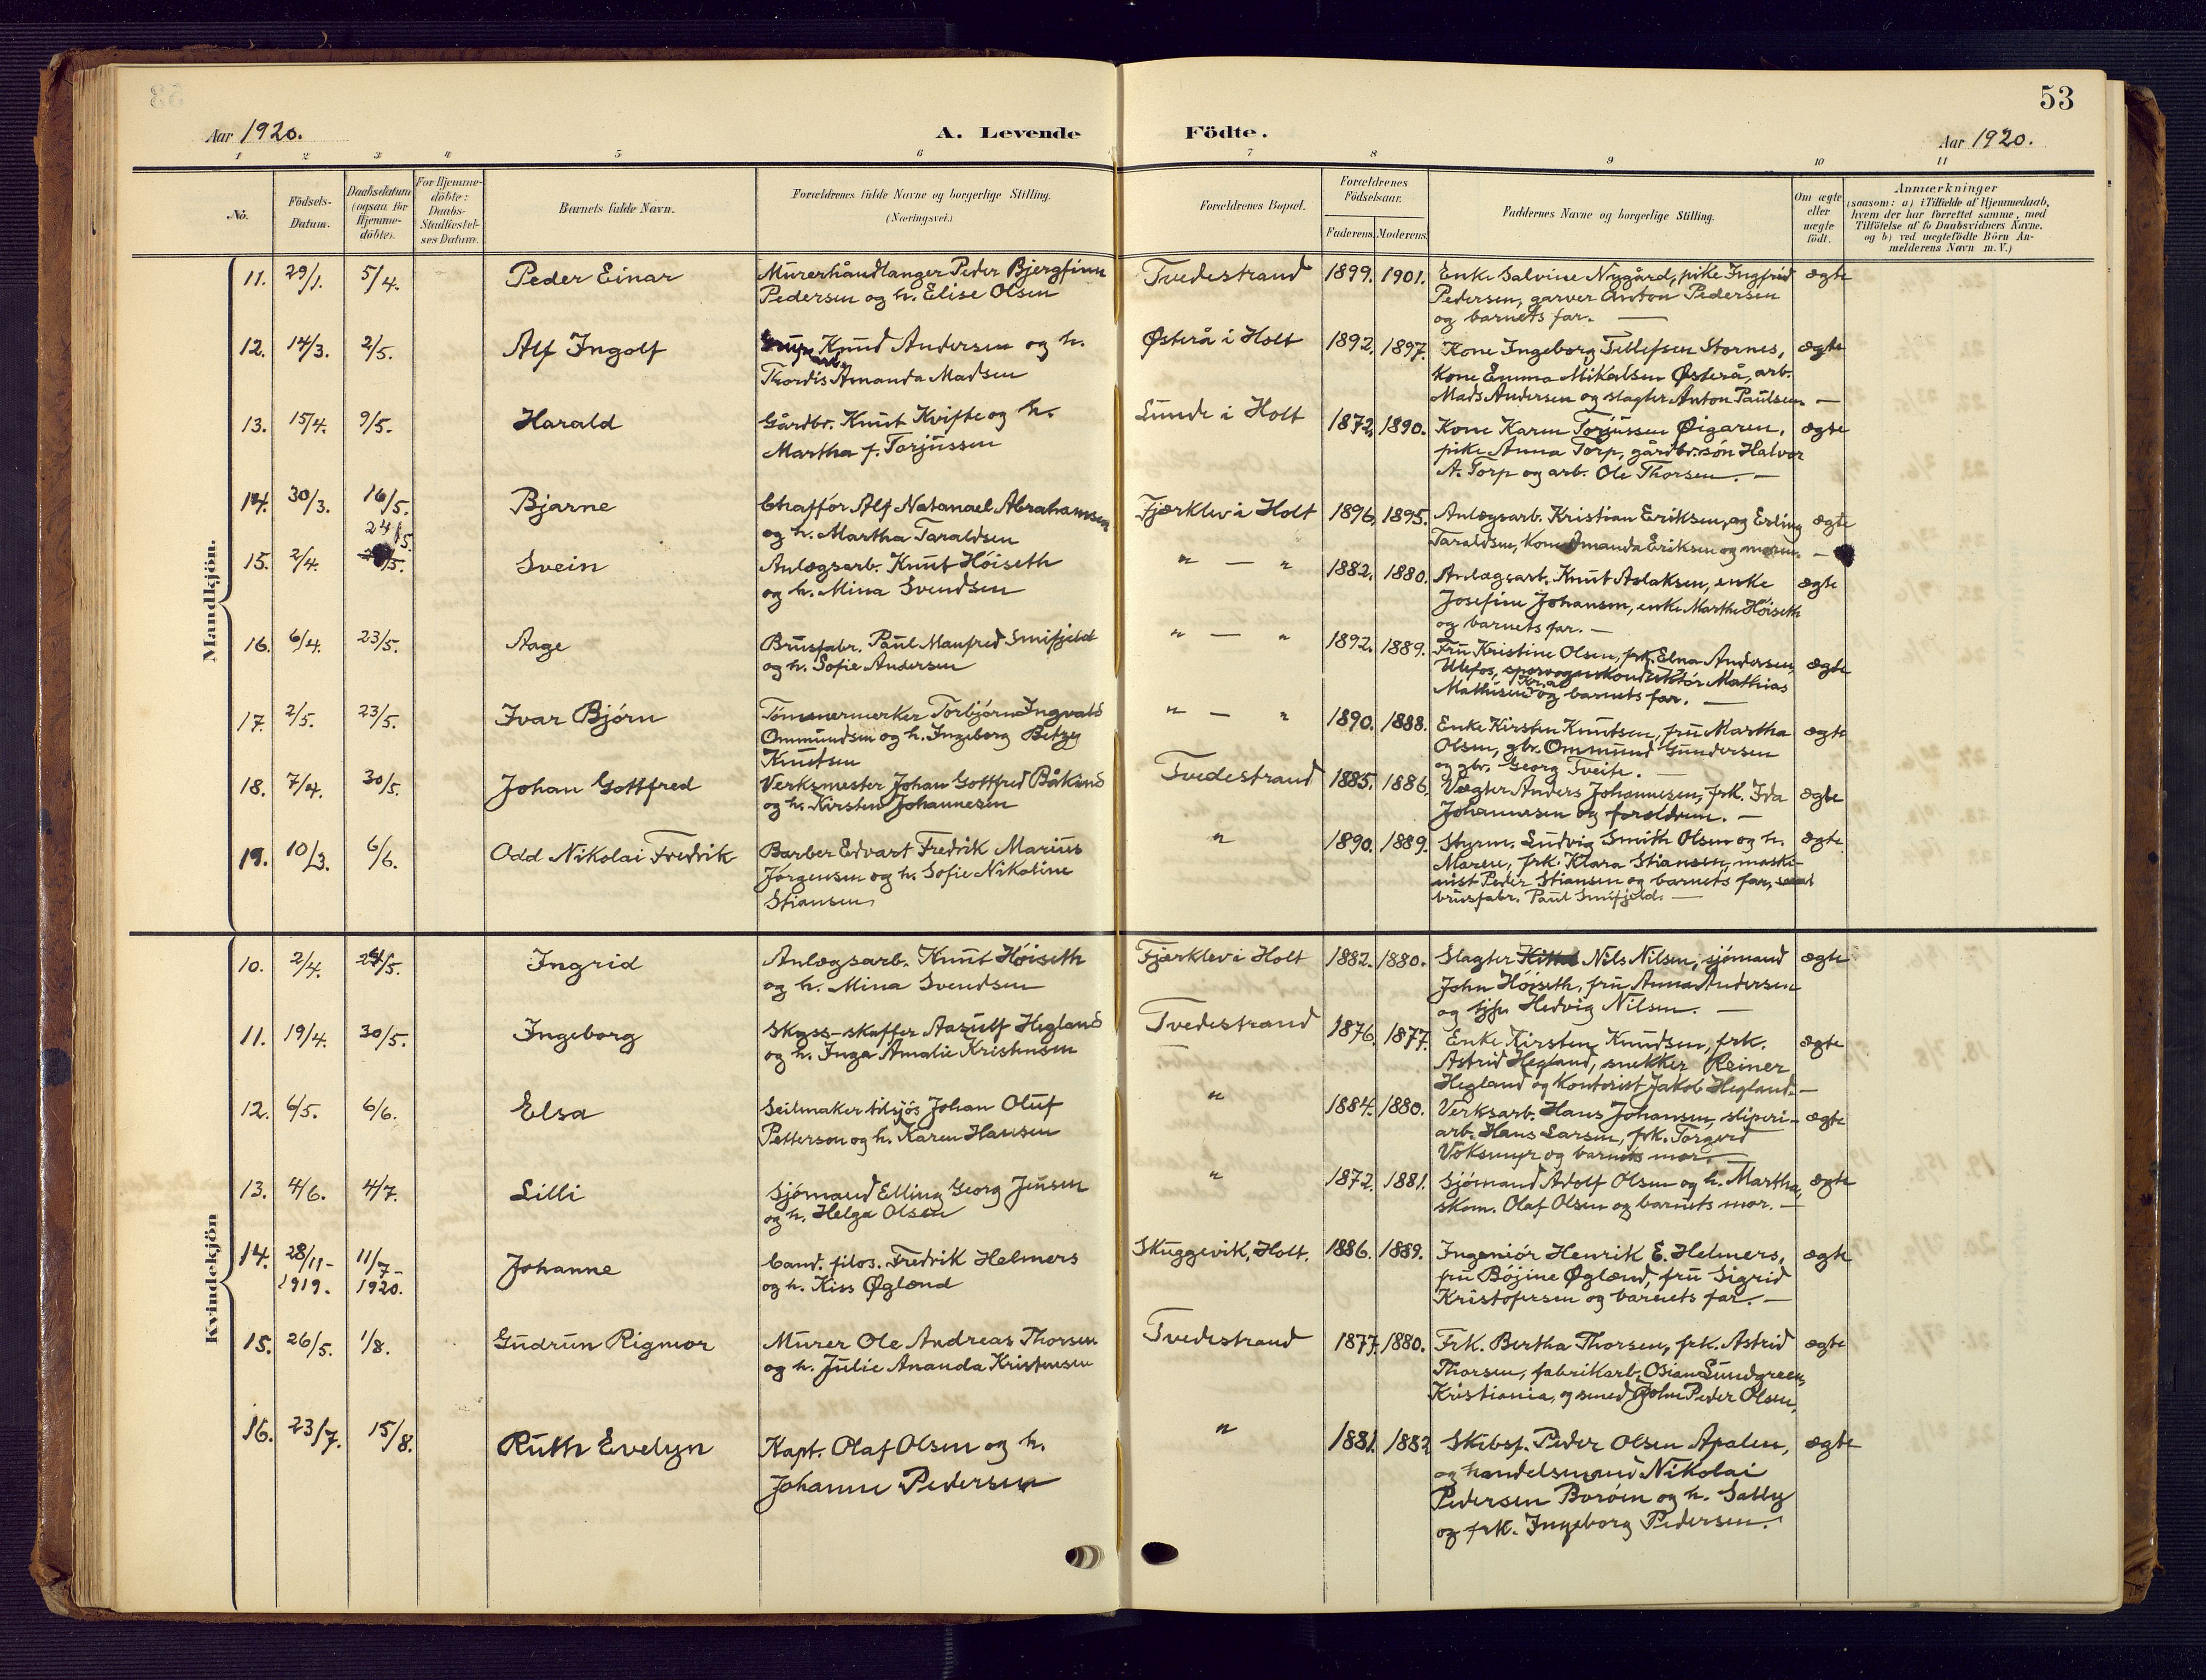 53
Aar 1920.
A. Levende
Födte.
Aar 1920.
1 2 3 4 5 6 7 8 9 10 11
No.
Födsels-Datum.
Daabsdatum (ogsaa for Hjemme-döbte).
For Hjemme-döbte: Daabs-Stadfæstel-ses Datum.
Barnets fulde Navn.
Forældrenes fulde Navne og borgerlige Stilling.
(Næringsvei.)
Forældrenes Bopæl.
Forældrenes Födselsaar.
Faderens. Moderens.
Faddernes Navne og borgerlige Stilling.
Om ægte eller uægte födt.
Anmærkninger
(saasom: a) i Tilfælde af Hjemmedaab,
hvem der har forrettet samme, med
Tilföielse af to Daabsvidners Navne.
og b) ved uægtefödte Börn An-
melderens Navn m. V.)
Mandkjön.
11. 29/1. 5/4. Peder Einar
Murerhåndlanger Peder Bjergfinn
Pedersen og h. Elise Olsen
Tvedestrand 1899. 1901.
Enke Salvine Nygård, pike Ingfrid
Pedersen, garver Anton Pedersen
og barnets far. —
ægte
12. 14/3. 2/5. Alf Ingolf
Knud Andersen og h.
Thordis Amanda Madsen
Østerå i Holt 1892. 1897.
Kone Ingeborg Tellefsen Stornes,
Kone Emma Mikalsen Østerå, arb.
Mads Andersen og slagter Anton Paulsen —
ægte
13. 15/4. 9/5. Harald
Gårdbr. Knut Kvifte og h.
Martha f. Torjussen
Lunde i Holt 1872. 1890.
Kone Karen Torjussen Øigaren,
pike Anna Torp, gårdbr.søn Halvor
A. Torp og arb. Ole Thorsen. —
ægte
14. 30/3. 16/5. Bjarne
Chaffør Alf Natanael Abrahamsen
og h. Martha Taraldsen
Fjærklev i Holt 1896. 1895.
Anlægsarb. Kristian Eriksen, og Erling
Taraldsen, kone Amanda Eriksen og moren. —
ægte
15. 2/4. 24/5. Svein
Anlægsarb. Knut Høiseth
og h. Mina Svendsen
" — " 1882. 1880.
Anlægsarb. Knut Aslaksen, enke
Josefine Johansen, enke Marthe Høiseth
og barnets far. —
ægte
16. 6/4. 23/5. Aage
Brusfabr. Paul Manfred Smifjeld
og h. Sofie Andersen
" — " 1892. 1889.
Fru Kristine Olsen, frk. Elna Andersen,
Ulefos, sporvognskonduktør Mathias
Mathisen Kr.a og barnets far. —
ægte
17. 2/5. 23/5. Ivar Bjørn
Tømmermerker Torbjørn Ingvald
Ommundsen og h. Ingeborg Betzy
Knutsen
" — " 1890. 1888.
Enke Kirsten Knutsen, fru Martha
Olsen, gbr. Ommund Gundersen
og gbr. Georg Tveite. —
ægte
18. 7/4. 30/5. Johan Gottfred
Verksmester Johan Gottfred Båkind
og h. Kirsten Johannesen
Tvedestrand 1885. 1886.
Vægter Anders Johannesen, frk. Ida
Johannesen og forældrene. —
ægte
19. 10/3. 6/6. Odd Nikolai Fredrik
Barber Edvart Fredrik Marius
Jørgensen og h. Sofie Nikoline
Stiansen
" 1890. 1889.
Styrm. Ludvig Smith Olsen og h.
Maren, frk. Klara Stiansen, maski-
nist Peder Stiansen og barnets far,
brusfabr. Paul Smifjeld. —
ægte
Kvindekjön
10. 2/4. 24/5. Ingrid
Anlægsarb. Knut Høiseth
og h. Mina Svendsen
Fjærklev i Holt 1882. 1880.
Slagter Nils Nilsen, sjømand
John Høiseth, fru Anna Andersen
og Hedvig Nilsen. —
ægte
11. 19/4. 30/5. Ingeborg
Skyss-skaffer Aasulf Hegland
og h. Inga Amalie Kristensen
Tvedestrand 1876. 1877.
Enke Kirsten Knudsen, frk.
Astrid Hegland, snekker Reiner
Hegland og kontorist Jakob Hegland. —
ægte
12. 6/5. 6/6. Elsa
Seilmaker tilsjøs Johan Oluf
Petterson og h. Karen Hansen
" 1884. 1880.
Verksarb. Hans Johansen, sliperi-
arb. Hans Larsen, frk. Torgerd
Voksmyr og barnets mor. —
ægte
13. 4/6. 4/7. Lilli
Sjømand Elling Georg Jensen
og h. Helga Olsen
" 1872. 1881.
Sjømand Adolf Olsen og h. Martha,
skom. Olaf Olsen og barnets mor. —
ægte
14. 28/11- 1919. 11/7- 1920. Johanne
Cand. filos. Fredrik Helmers
og h. Kiss Øglænd
Skuggevik, Holt. 1886. 1889.
Ingeniør Henrik E. Helmers,
fru Bøjine Øglænd, fru Sigrid
Kristofersen og barnets far. —
ægte
15. 26/5. 1/8. Gudrun Rigmor
Murer Ole Andreas Thorsen
og h. Julie Ananda Kristensen
Tvedestrand 1877. 1880.
Frk. Bertha Thorsen, frk. Astrid
Thorsen, fabrikarb. Osian Lundgreen,
Kristiania, og smed John Peder Olsen.
ægte
16. 23/7. 15/8. Ruth Evelyn
Kapt. Olaf Olsen og h.
Johanne Pedersen
" 1881. 1882
Skibsf. Peder Olsen Apalen,
og handelsmand Nikolai
Pedersen Borøen og h. Sally
og frk. Ingeborg Pedersen.
ægte